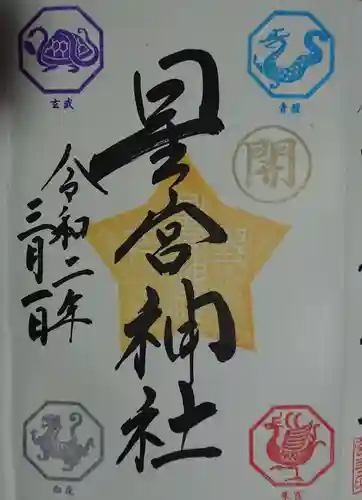 玄武
青龍
開
星宮神社
令和二年
三月一日
白虎
朱雀